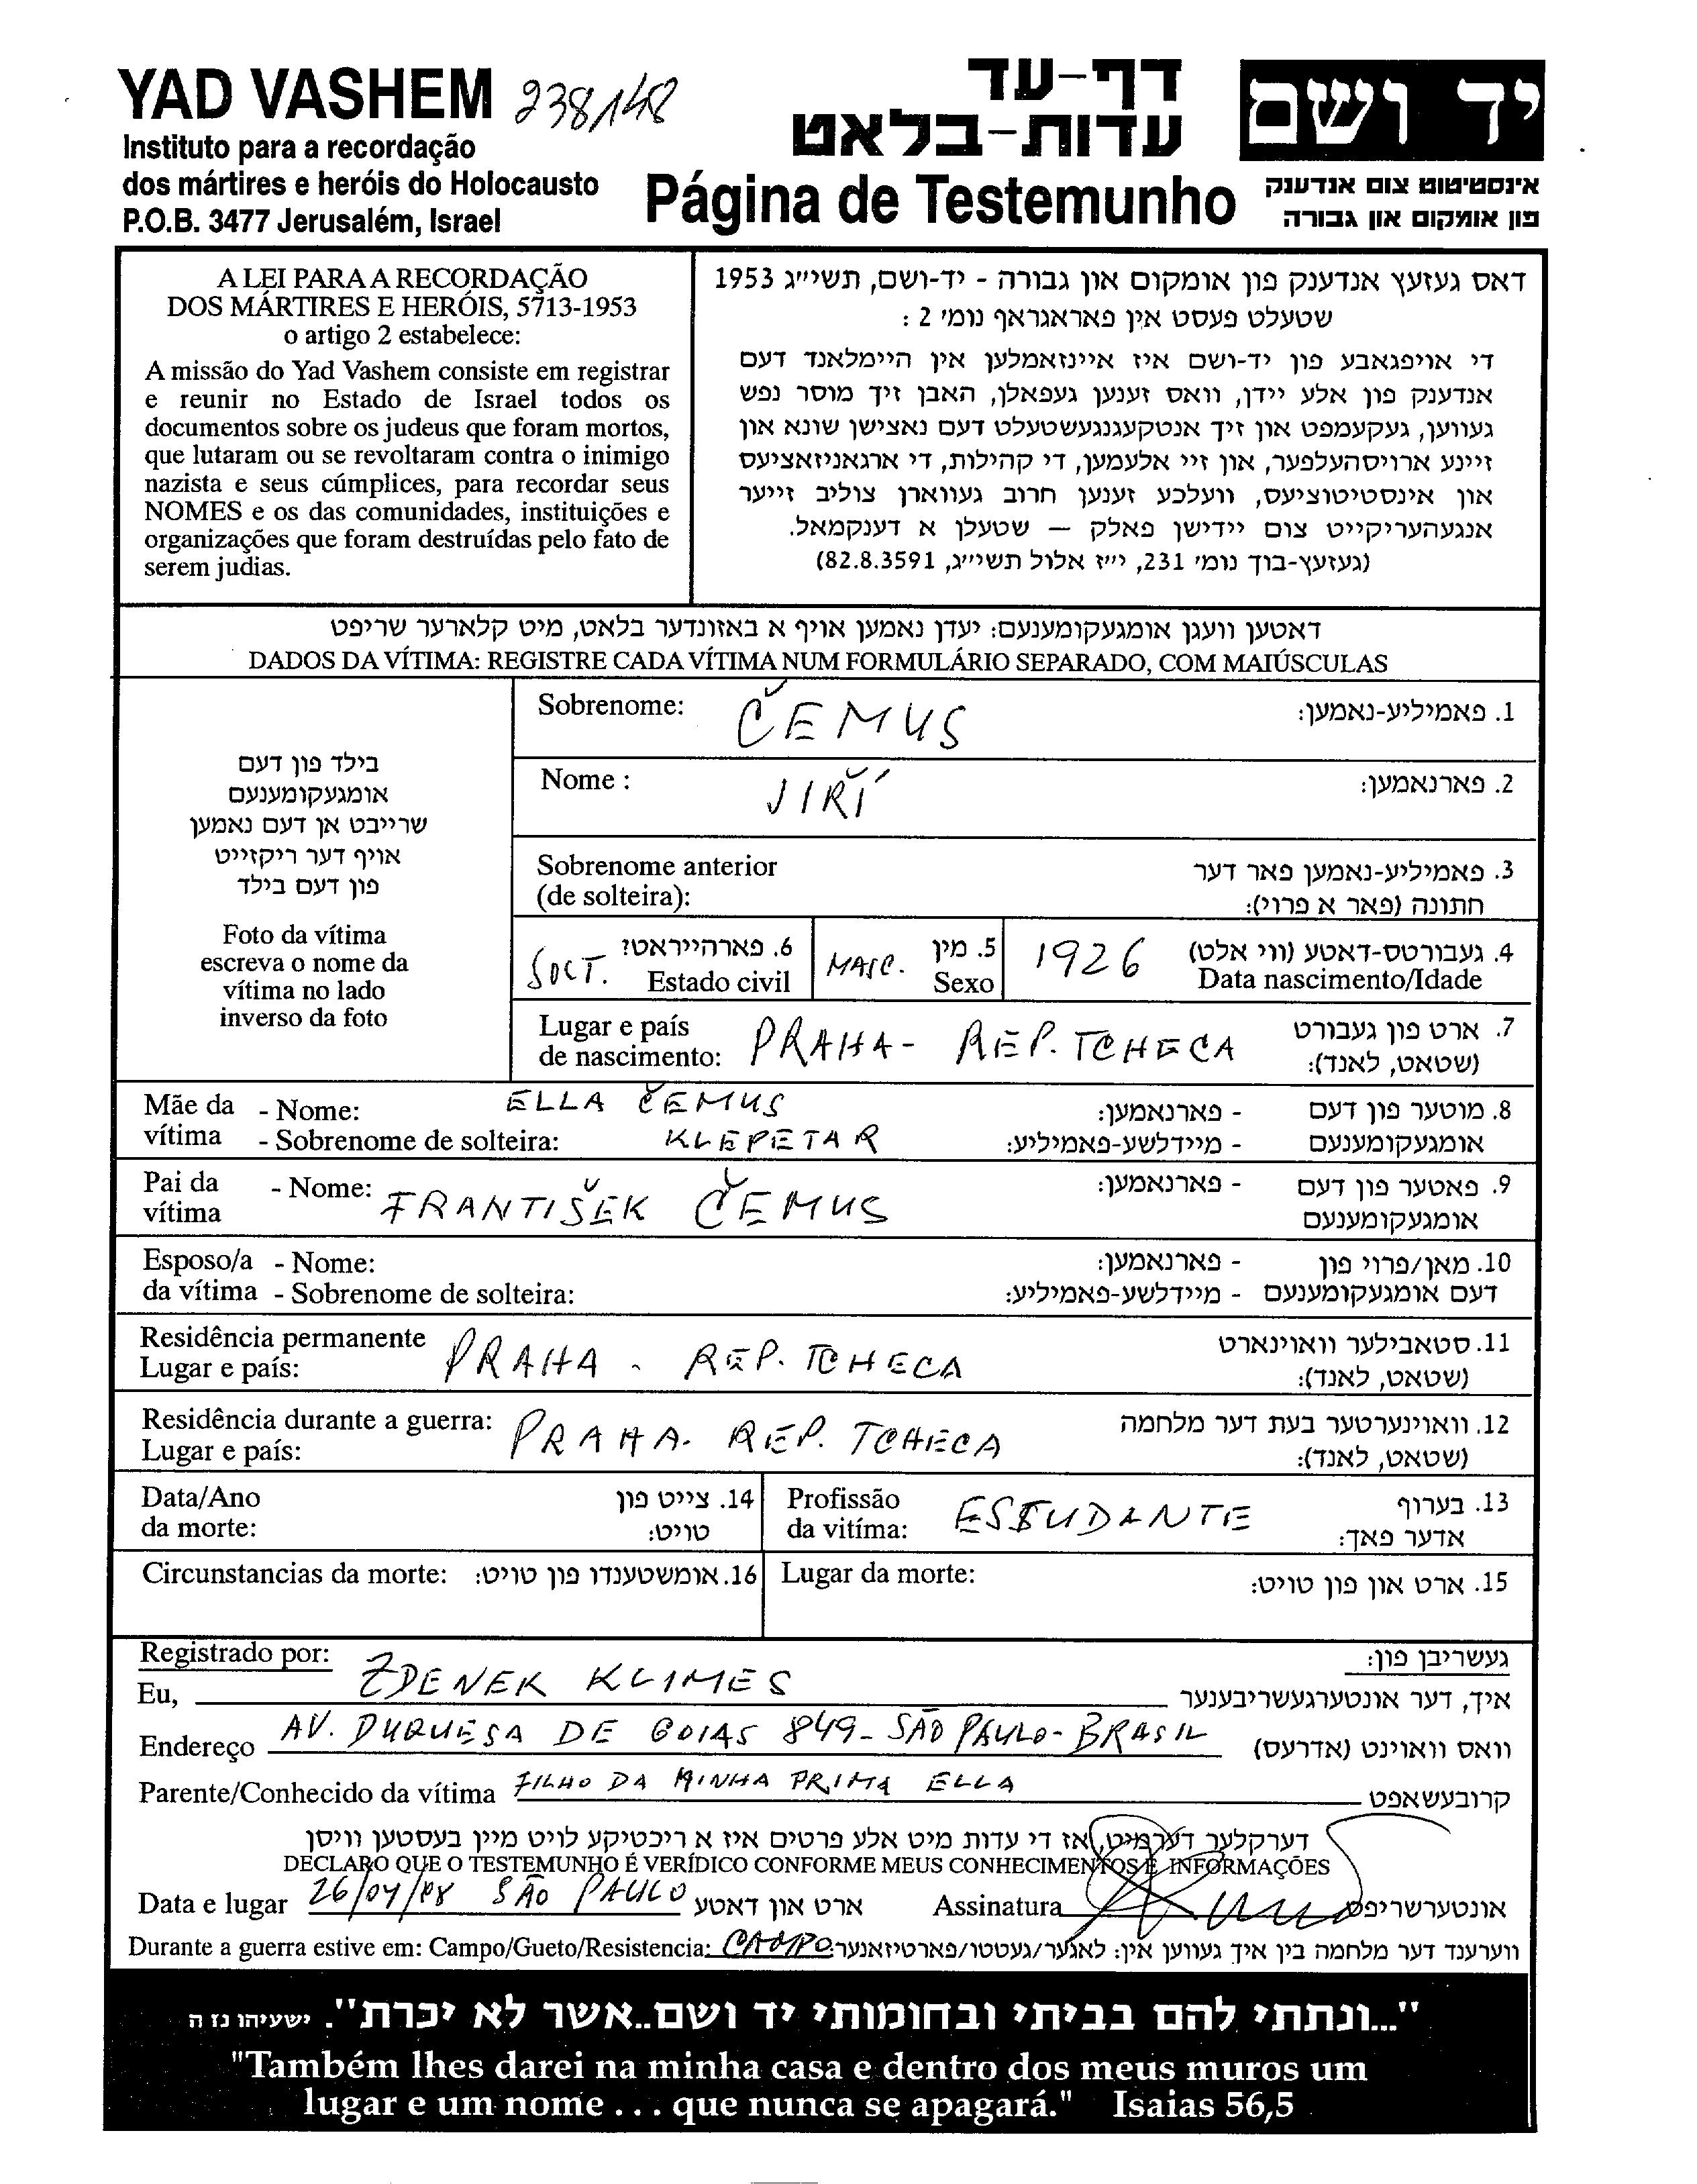 YAD VASHEM 238/148
Instituto para a recordação
dos mártires e heróis do Holocausto
P.O.B. 3477 Jerusalém, Israel
דף-עד
עדות-בלאט
Página de Testemunho
יד ושם
אינסטיטוט צום אנדענק
פון אומקום און גבורה
A LEI PARA A RECORDAÇÃO
DOS MÁRTIRES E HERÓIS, 5713-1953
o artigo 2 estabelece:
A missão do Yad Vashem consiste em registrar
e reunir no Estado de Israel todos os
documentos sobre os judeus que foram mortos,
que lutaram ou se revoltaram contra o inimigo
nazista e seus cúmplices, para recordar seus
NOMES e os das comunidades, instituições e
organizações que foram destruídas pelo fato de
serem judias.
דאס געזעץ אנדענק פון אומקום און גבורה - יד-ושם, תשי״ג 1953
שטעלט פעסט אין פאראגראף נומ׳ 2 :
די אויפגאבע פון יד-ושם איז איינזאמלען אין היימלאנד דעם
אנדענק פון אלע יידן, וואס זענען געפאלן, האבן זיך מוסר נפש
געווען, געקעמפט און זיך אנטקעגנגעשטעלט דעם נאצישן שונא און
זיינע ארויסהעלפער, און זיי אלעמען, די קהילות, די ארגאניזאציעס
און אינסטיטוציעס, וועלכע זענען חרוב געווארן צוליב זייער
אנגעהעריקייט צום יידישן פאלק – שטעלן א דענקמאל.
(געזעץ-בוך נומ׳ 231, י״ז אלול תשי״ג, 82.8.3591)
דאטען וועגן אומגעקומענעם: יעדן נאמען אויף א באזונדער בלאט, מיט קלארער שריפט
DADOS DA VÍTIMA: REGISTRE CADA VÍTIMA NUM FORMULÁRIO SEPARADO, COM MAIÚSCULAS
בילד פון דעם
אומגעקומענעם
שרייבט אן דעם נאמען
אויף דער ריקזייט
פון דעם בילד
Foto da vítima
escreva o nome da
vítima no lado
inverso da foto
Sobrenome: ČEMUS 1. פאמיליע-נאמען:
Nome : JIŘÍ 2. פארנאמען:
Sobrenome anterior 3. פאמיליע-נאמען פאר דער
(de solteira): חתונה (פאר א פרוי):
SOLT. 6. פארהייראט? MASC. 5. מין 1926 4. געבורטס-דאטע (ווי אלט)
Estado civil Sexo Data nascimento/Idade
Lugar e país PRAHA - REP. TCHECA 7. ארט פון געבורט
de nascimento: (שטאט, לאנד):
Mãe da - Nome: ELLA ČEMUS - פארנאמען: 8. מוטער פון דעם
vítima - Sobrenome de solteira: KLEPETAR - מיידלשע-פאמיליע: אומגעקומענעם
Pai da - Nome: FRANTIŠEK ČEMUS - פארנאמען: 9. פאטער פון דעם
vítima אומגעקומענעם
Esposo/a - Nome: - פארנאמען: 10. מאן/פרוי פון
da vítima - Sobrenome de solteira: - מיידלשע-פאמיליע: דעם אומגעקומענעם
Residência permanente PRAHA - REP. TCHECA 11. סטאבילער וואוינארט
Lugar e país: (שטאט, לאנד):
Residência durante a guerra: PRAHA - REP. TCHECA 12. וואוינערטער בעת דער מלחמה
Lugar e país: (שטאט, לאנד):
Data/Ano 14. צייט פון Profissão ESTUDANTE 13. בערוף
da morte: טויט: da vitíma: אדער פאך:
Circunstancias da morte: 16. אומשטענדו פון טויט: Lugar da morte: 15. ארט און פון טויט:
Registrado por: געשריבן פון:
Eu, ZDENEK KLIMES איך, דער אונטערגעשריבענער
Endereço AV. DUQUESA DE GOIAS 849 - SÃO PAULO - BRASIL וואס וואוינט (אדרעס)
Parente/Conhecido da vítima FILHO DA MINHA PRIMA ELLA קרובעשאפט
דערקלער דערמיט, אז די עדות מיט אלע פרטים איז א ריכטיקע לויט מיין בעסטען וויסן
DECLARO QUE O TESTEMUNHO É VERÍDICO CONFORME MEUS CONHECIMENTOS E INFORMAÇÕES
Data e lugar 26/04/98 SÃO PAULO ארט און דאטע Assinatura אונטערשריפט
Durante a guerra estive em: Campo/Gueto/Resistencia: CAMPO ווערענד דער מלחמה בין איך געווען אין: לאגער/געטטו/פארטיזאנער
"...ונתתי להם בביתי ובחומותי יד ושם..אשר לא יכרת". ישעיהו נז ה
"Também lhes darei na minha casa e dentro dos meus muros um
lugar e um nome . . . que nunca se apagará." Isaias 56,5